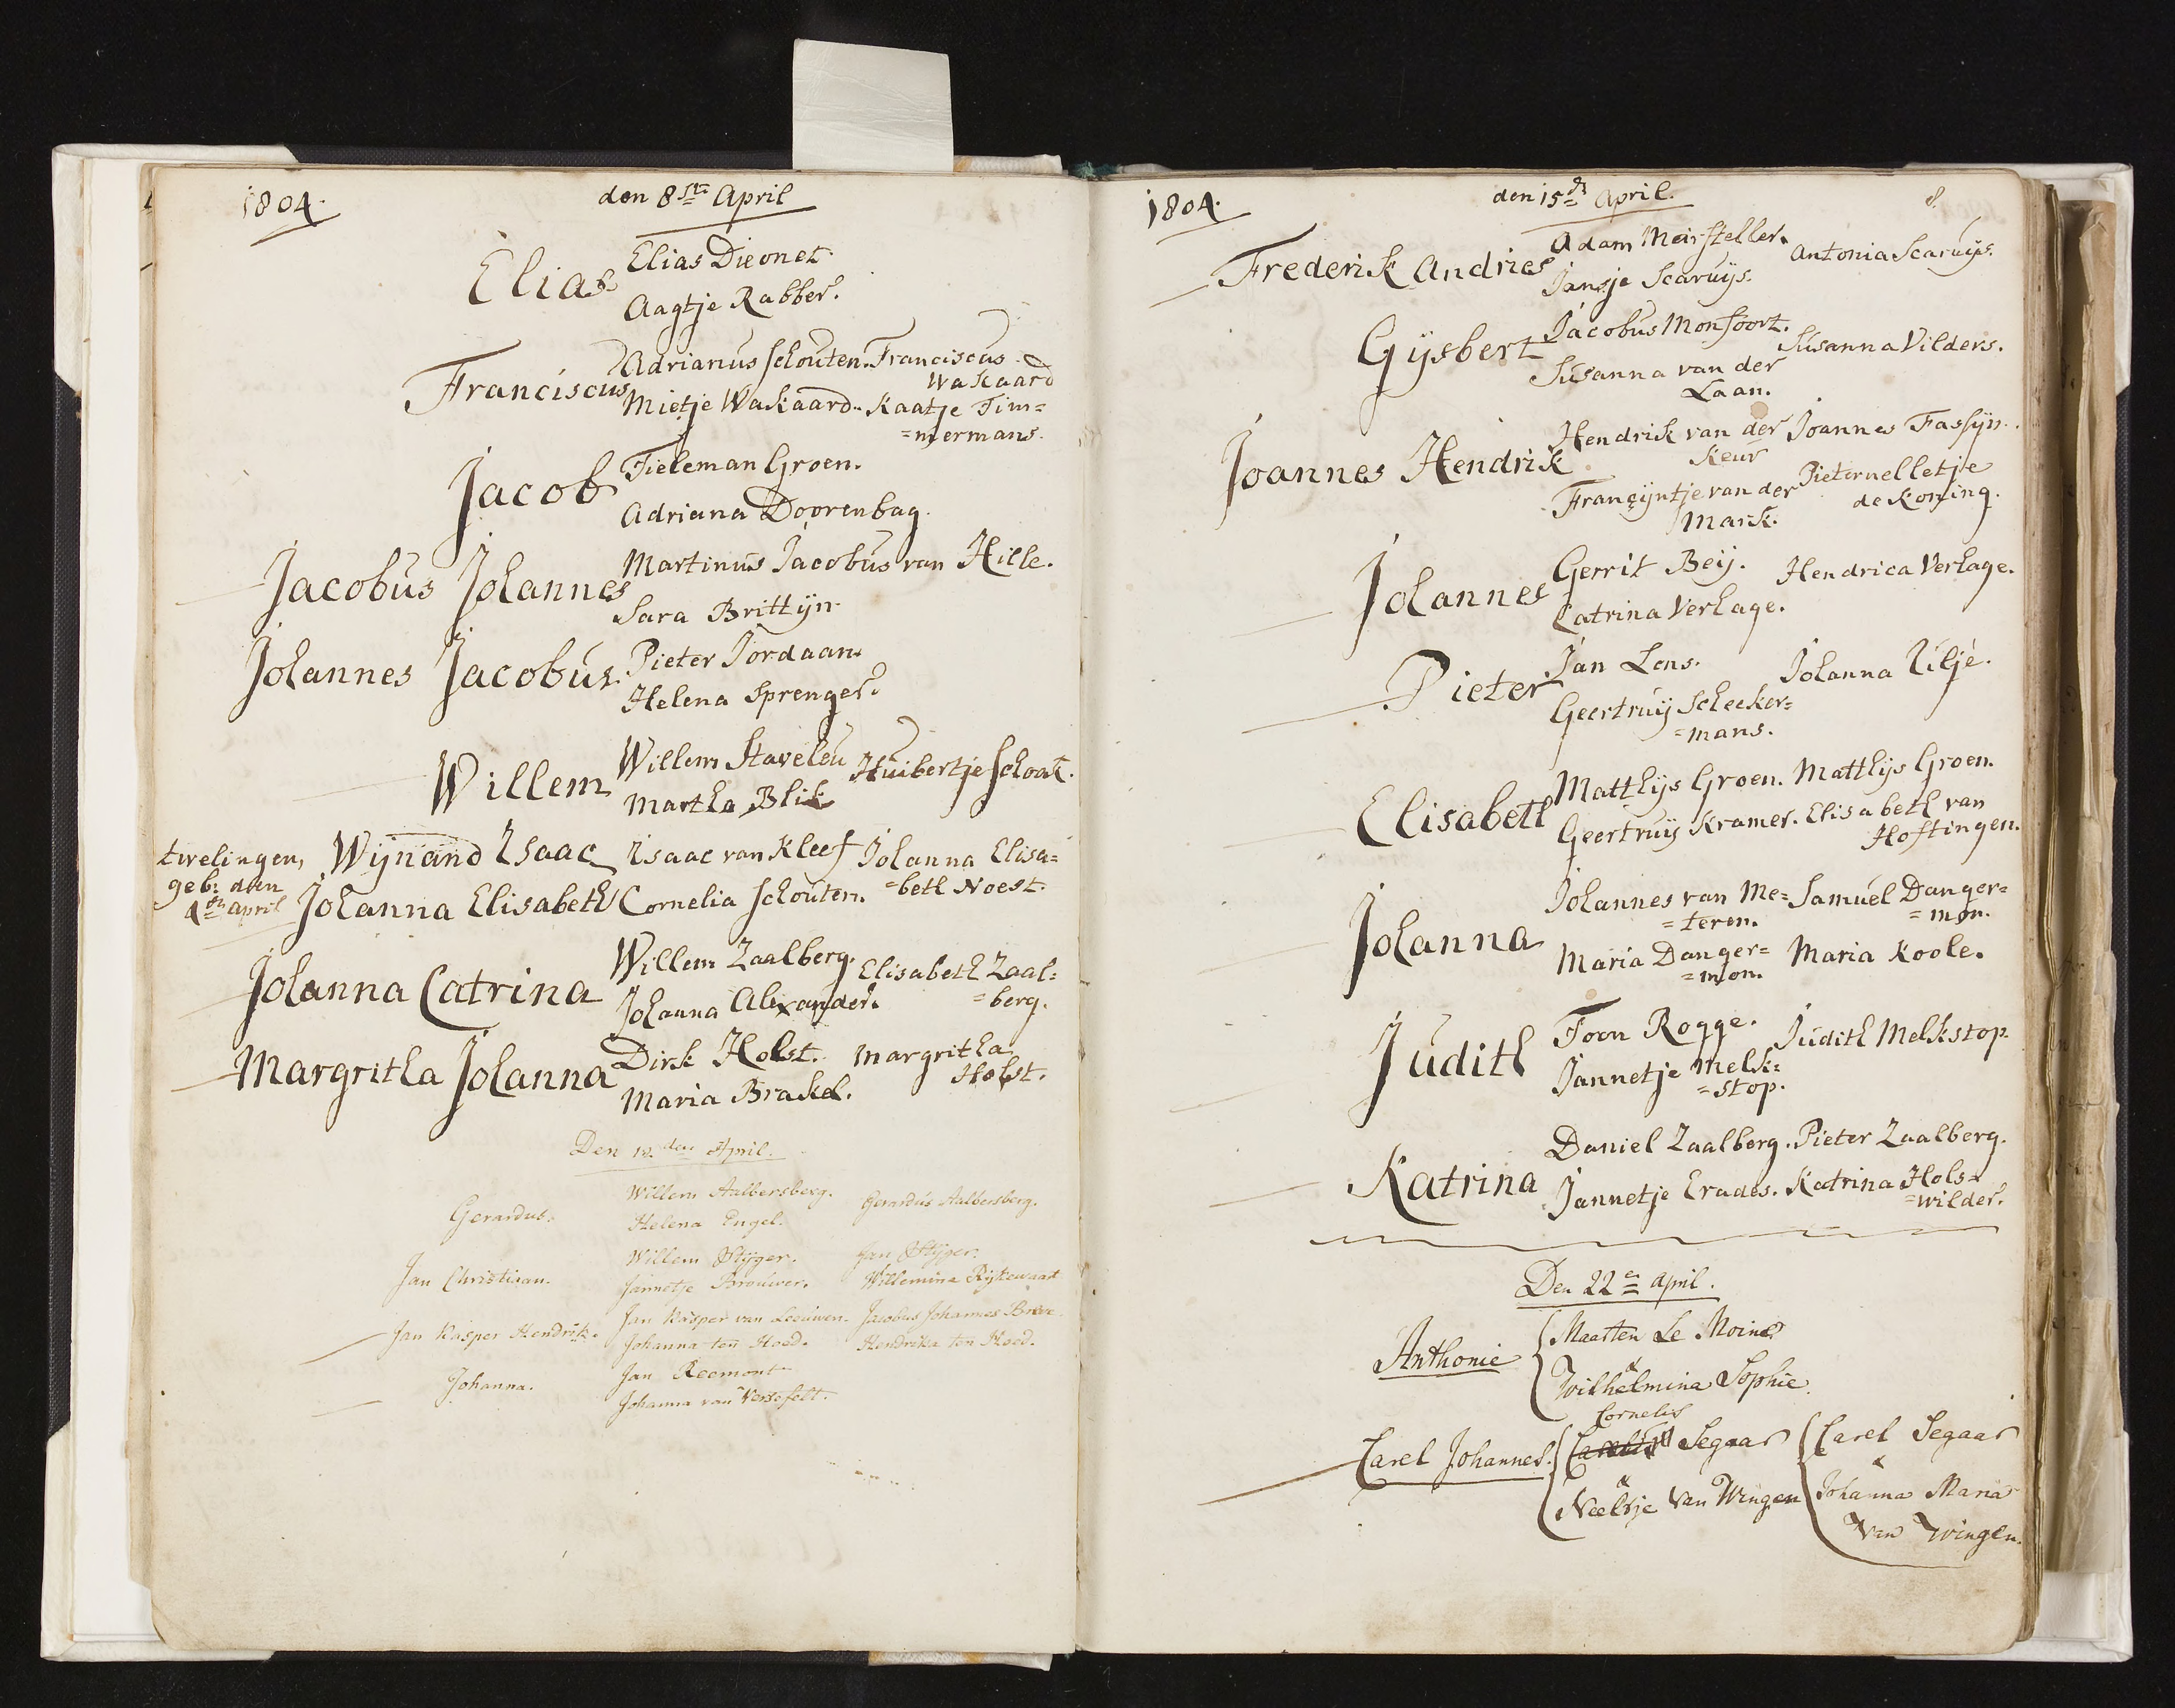 1804. den 8ste April
Elias Elias Dieonet.
Aagtje Rabber.
Franciscus Adrianus Schouten. Franciscus
Wakaard
Mietje Wakaard. Kaatje Tim=
=mermans.
Jacob Tieleman Groen.
Adriana Doorenbag.
Jacobus Johannes Martinus Jacobus van Hille.
Sara Brittijn.
Johannes Jacobus. Pieter Jordaan.
Helena Sprenger.
Willem Willem Staveleu Huibertje Schoak.
Martha Blik
twelingen, Wijnand Isaac Isaac van Kleef Johanna Elisa=
geb: den Johanna Elisabeth Cornelia Schouten. =beth Noest.
april
Johanna Catrina Willem Zaalberg. Elisabeth Zaal=
Johanna Alexander. =berg.
Margritha Johanna Dirk Holst. Margritha
Holst.
Maria Brakel.
Den den April.
Gerardus. Willem Aalbersberg. Gerardus Aalbersberg.
Helena Engel.
Jan Christiaan. Willem Stijger. Jan Stijger.
Jannetje Brouwer. Willemina Rijkewaart
Jan Kasper Hendrik. Jan Kasper van Leeuwen. Jacobus Johannes Bree.
Johanna ten Hoed. Hendrika ten Hoed.
Johanna. Jan Reemont
Johanna van Versefelt.
1804. den 15de April. 8.
Frederik Andries Adam Meirsteller. Antonia Scaruijs.
Jansje Scaruijs.
Gijsbert Jacobus Monfoort. Susanna Vilders.
Susanna van der
Laan.
Joannes Hendrik Hendrik van der Joannes Fassijn.
Keur
Françijntje van der Pieternelletje
Mark. de Koning.
Johannes Gerrit Beij. Hendrica Verhage.
Catrina Verhage.
Pieter Jan Lens. Johanna Lilje.
Geertruij Scheeker=
=mans.
Elisabeth Matthijs Groen. Matthijs Groen.
Geertruij Kramer. Elisabeth van
Hoftingen.
Johanna Johannes van Me= Samuel Danger=
=teren. =mon.
Maria Danger= Maria Koole.
=mon.
Judith Toon Rogge. Judith Melkstop.
Jannetje Melk=
=stop.
Katrina Daniel Zaalberg. Pieter Zaalberg.
Jannetje Erades. Katrina Hols=
=wilder.
Den 22en April.
Anthonie Maarten Le Moine
&
Wilhelmina Sophie.
Cornelis
Carel Johannes. Carelis Segaar Carel Segaar
& &
Neeltje Van Wingen Johanna Maria
Van Wingen.